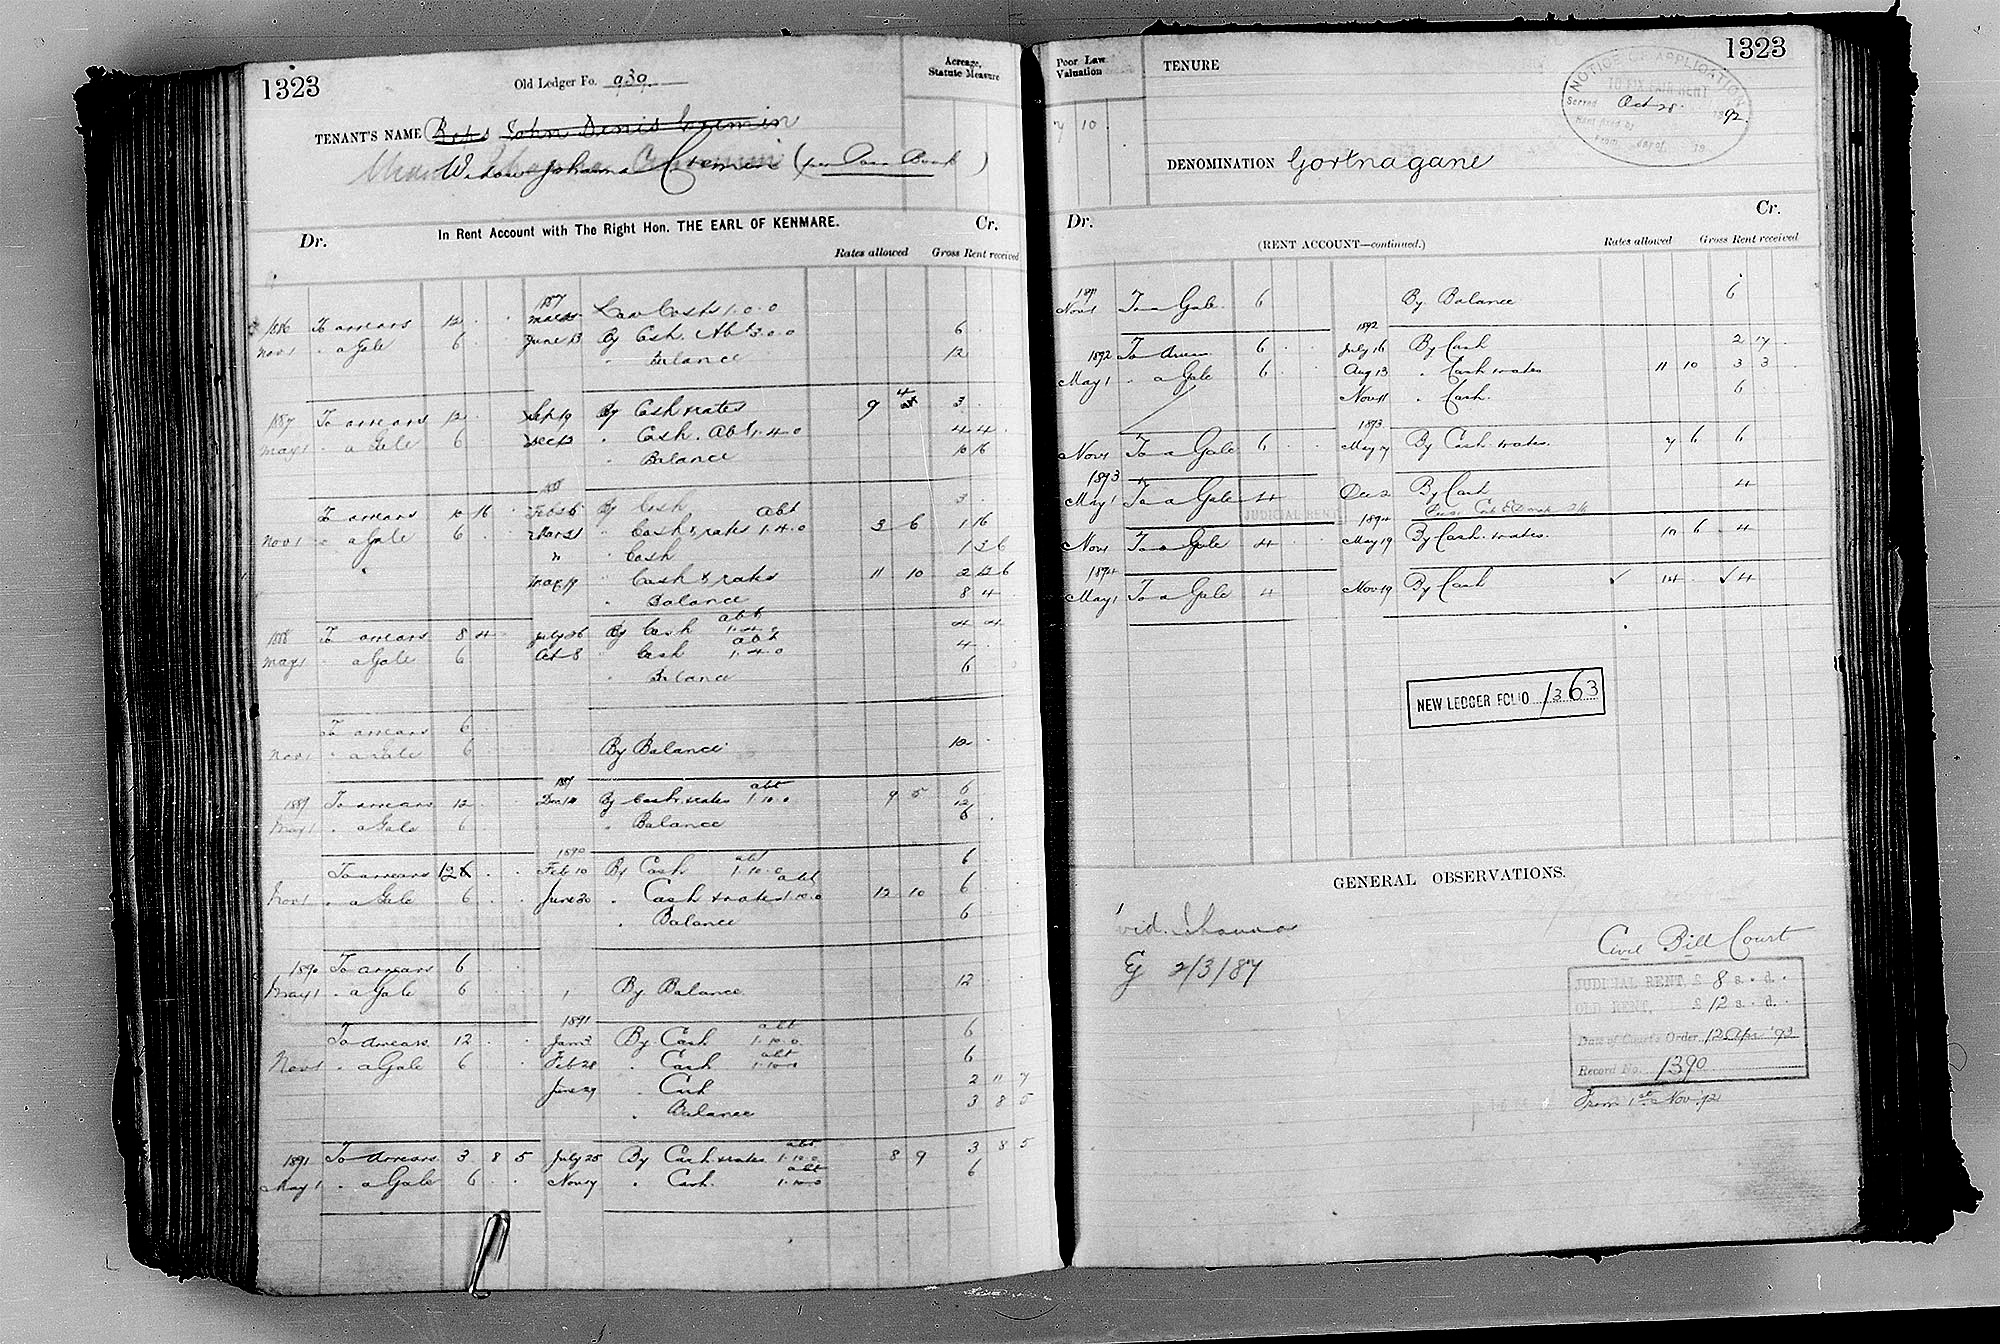 1323
Old Ledger Fo. 939
Acreage, Statute Measure
TENANT'S NAME Reps John Denis Cremin
Widow Johanna Cremin (per Pass Book)
In Rent Account with The Right Hon. THE EARL OF KENMARE.
Dr. Cr.
Rates allowed Gross Rent received
1887
1886 To arrears 12 Law Costs 1.0.0
Nov 1 " a Gale 6 June 13 By Cash Abt 3.0.0 6
" Balance 12
1887 To arrears 12 Sep 19 By Cash & rates 9 4 3
May 1 " a Gale 6 Dec 13 " Cash. Abt 1.4.0 4 4
" Balance 10 16
1888
To arrears 10 16 Feb 26 By Cash 3
Nov 1 " a Gale 6 Mar 31 " Cash & rates abt 1.4.0 3 6 1 16
" " Cash 1 3 6
May 19 " Cash & rates 11 10 2 12 6
" Balance 8 4
1888 To arrears 8 4 July 26 By Cash abt 1.4.0 4 4
May 1 " a Gale 6 Oct 8 " Cash abt 1.4.0 4
" Balance 6
To arrears 6
Nov 1 " a Gale 6 By Balance 12
1889
1889 To arrears 12 Dec 14 By Cash & rates abt 1.10.0 9 5 6
May 1 " a Gale 6 " Balance 12
1890
To arrears 12 Feb 10 By Cash abt 1.10.0 6
Nov 1 " a Gale 6 June 20 " Cash & rates abt 1.10.0 12 10 6
" Balance 6
1890 To arrears 6
May 1 " a Gale 6 By Balance 12
1891
To arrears 12 Jan 3 By Cash abt 1.10.0 6
Nov 1 " a Gale 6 Feb 28 " Cash abt 1.10.0 6
June 29 " Cash 2 11 7
" Balance 3 8 5
1891 To arrears 3 8 5 July 25 By Cash & rates abt 1.10.0 8 9 3 8 5
May 1 " a Gale 6 Nov 17 " Cash abt 1.10.0 6
Poor Law Valuation
TENURE
1323
7 10
NOTICE OF APPLICATION
TO FIX FAIR RENT
Served Oct 28 1892
DENOMINATION Gortnagane
Dr. Cr.
(RENT ACCOUNT—continued.)
Rates allowed Gross Rent received
1891
Nov 1 To a Gale 6 By Balance 6
1892
1892 To arrears 6 July 16 By Cash 2 17
May 1 " a Gale 6 Aug 13 " Cash & rates 11 10 3 3
Nov 11 " Cash 6
1893
Nov 1 To a Gale 6 May 7 By Cash & rates. 7 6 6
1893
May 1 To a Gale 4 Dec 2 By Cash 4
JUDICIAL RENT
1894
Nov 1 To a Gale 4 May 19 By Cash & rates. 10 6 4
1894
May 1 To a Gale 4 Nov 19 By Cash 14 4
NEW LEDGER FOLIO 1363
GENERAL OBSERVATIONS.
2/3/87
Civil Bill Court
JUDICIAL RENT, £ 8 s. d.
OLD RENT, £ 12 s. d.
Date of Court's Order 12 Apr '93
Record No. 1390
From 1st Nov. 92